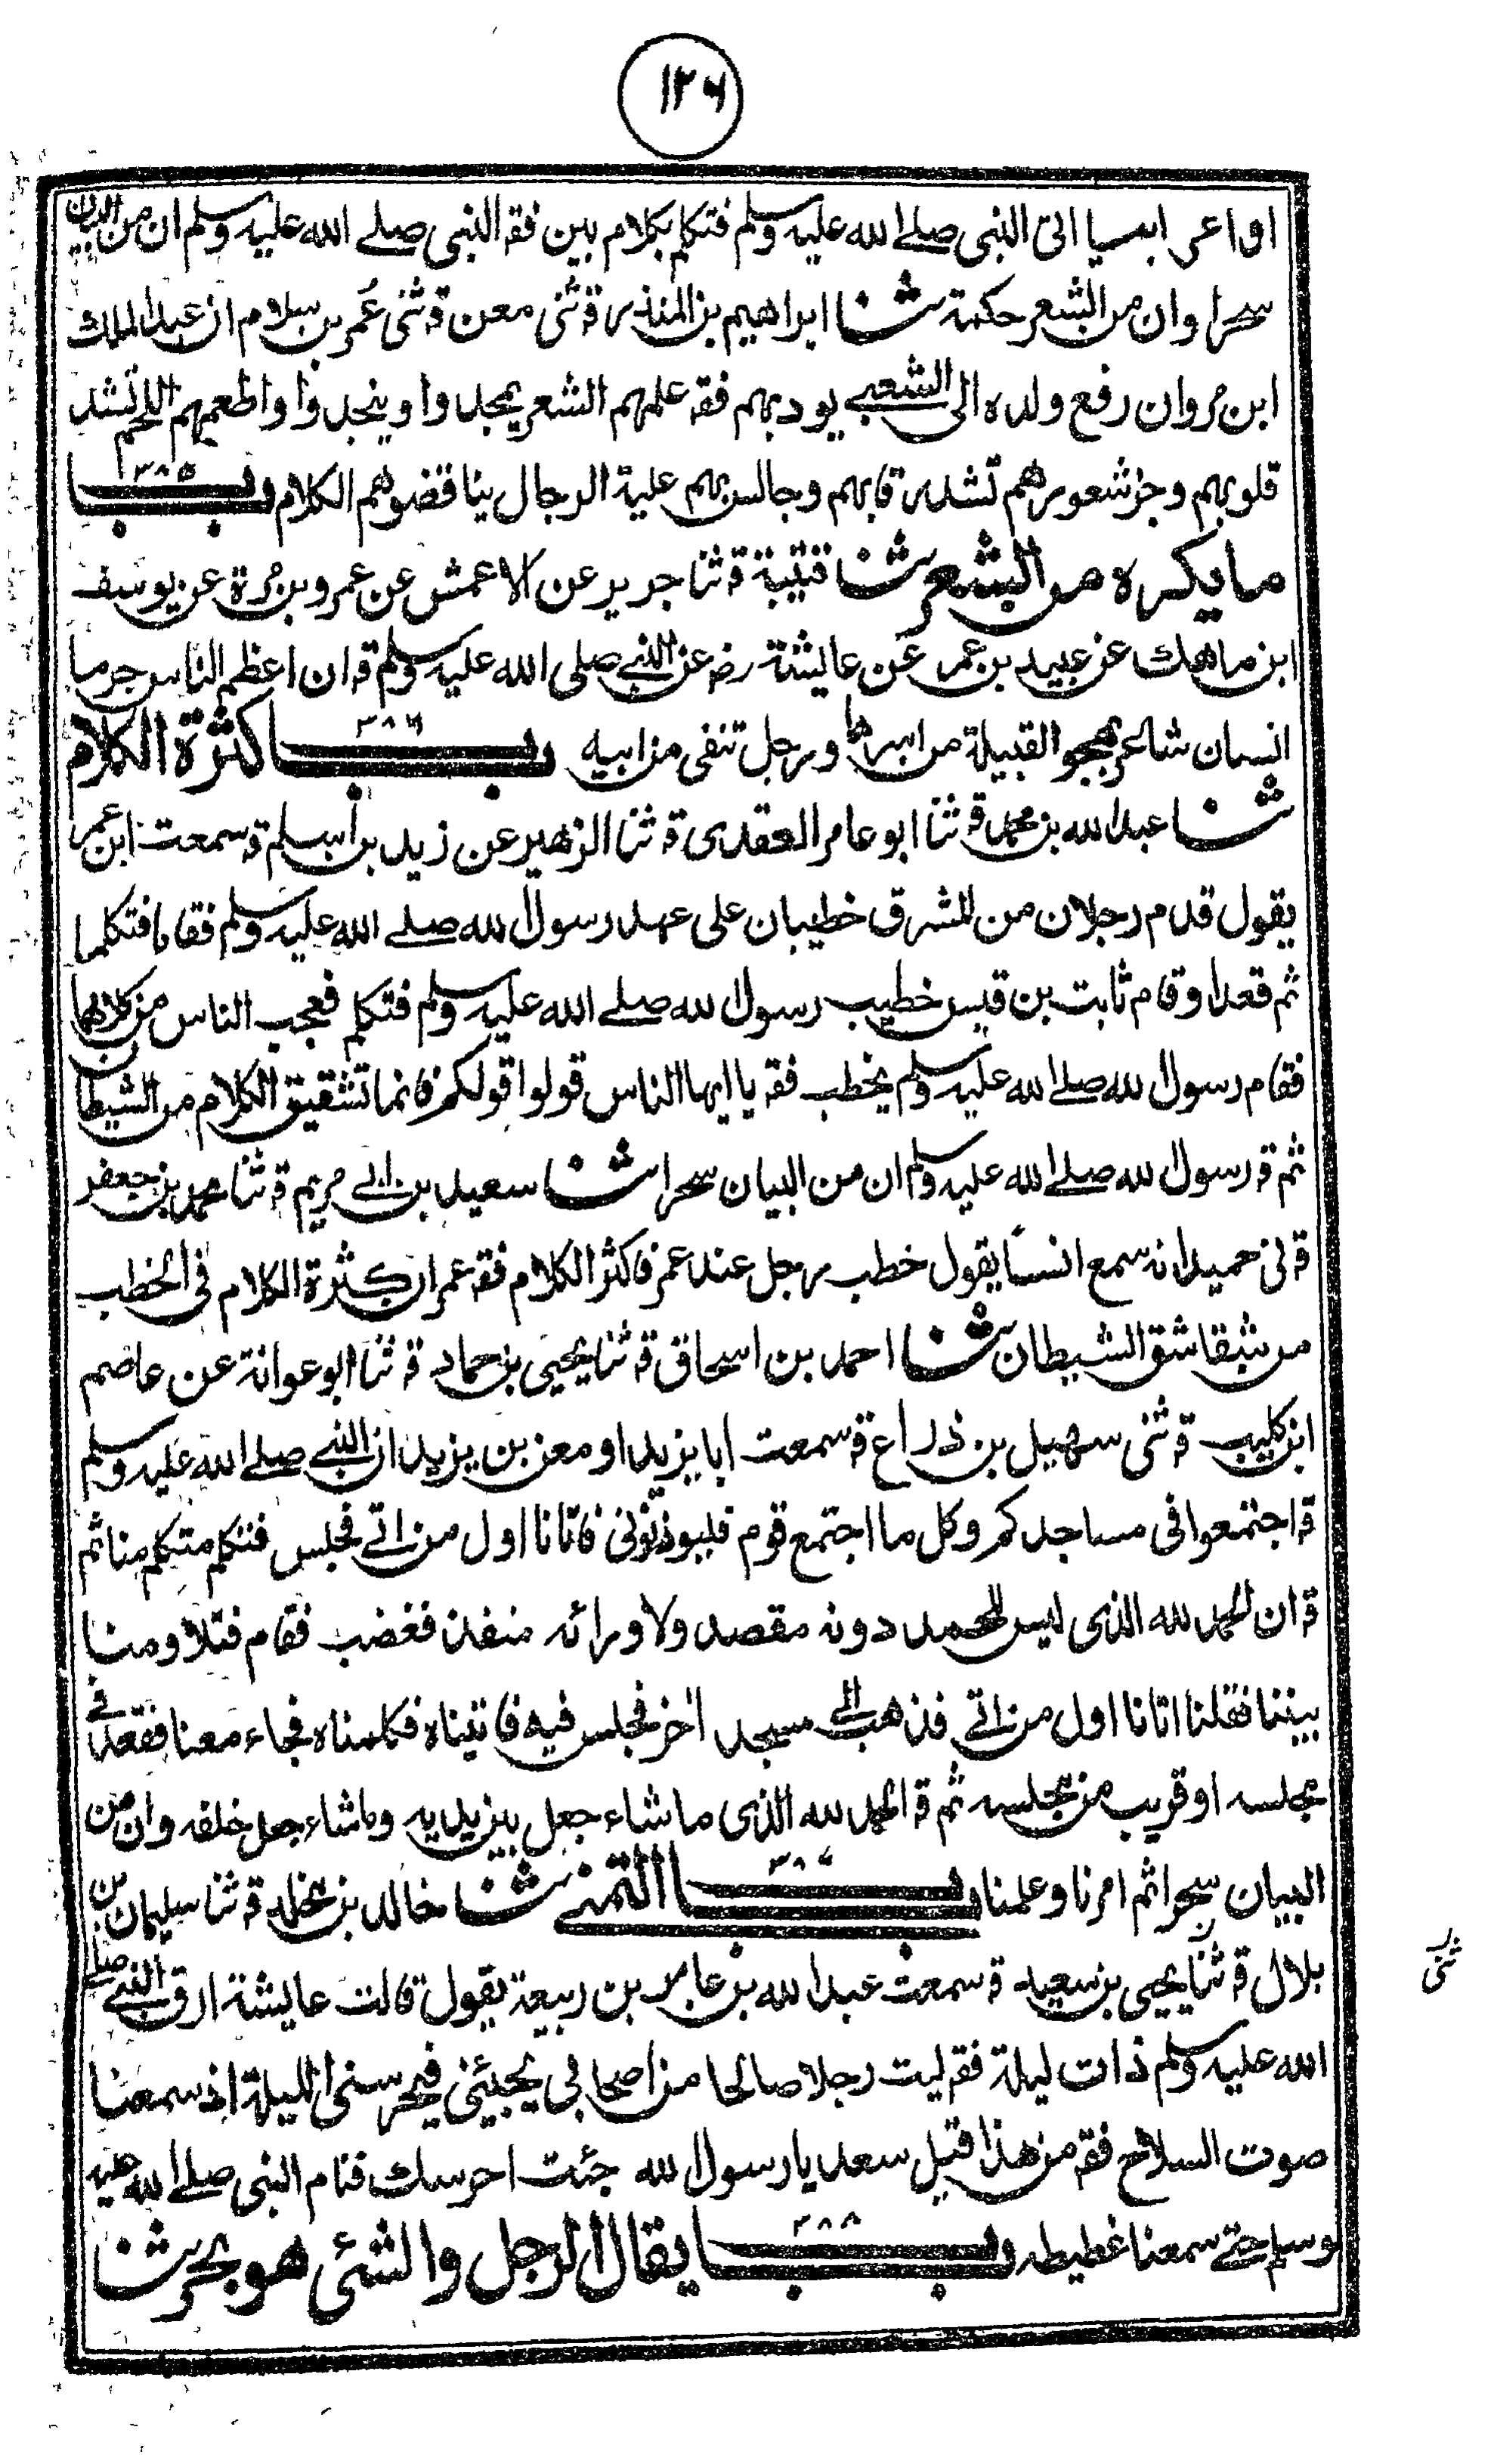 ۱۲۶
او اعرابيا اتى النبي صلے الله عليه وسلم فتكلم بكلام بين فقه النبي صلے الله عليه وسلم ان من البيان
سحرا وان من الشعر حكمة ثنا ابراهيم بن المنذر قه ثنى معن قه ثنى عُمر بن سلام ان عبد الملك
ابن مروان رفع ولده الى الشعبے يودبهم فقه علمهم الشعر يمجدوا وينجدوا واطعمهم اللحم تشتد
قلوبهم وجز شعورهم تشتد رقابهم وجالس بهم علية الرجال يناقضوهم الكلام باب ۳۸۵
ما يكره من الشعر ثنا قتيبة قه ثنا جرير عن الاعمش عن عمرو بن مُرة عن يوسف
ابن ماهك عن عبيد بن عمر عَن عايشة رضه عن النبے صلى الله عليه وسلم قه ان اعظم الناس جرما
انسان شاعر يهجو القبيلة من اسرها ورجل تنفى من ابيه باب ۳۸۶ كثرة الكلام
ثنا عبد الله بن محمد قه ثنا ابو عامر العقدى قه ثنا الزهير عن زيد بن اسلم قه سمعت ابن عمر
يقول قدم رجلان من المشرق خطيبان على عهد رسول الله صلے الله عليه وسلم فقاما فتكلما
ثم قعدا وقام ثابت بن قيس خطيب رسول الله صلے الله عليه وسلم فتكلم فعجب الناس من كلامهما
فقام رسول الله صلے الله عليه وسلم يخطب فقه يا ايها الناس قولوا قولكم فانما تشقيق الكلام من الشيطان
ثم قه رسول الله صلے الله عليه وسلم ان من البيان سحرا ثنا سعيد بن ابے مريم قه ثنا محمد بن جعفر
قه نى حميد انه سمع انسًا يقول خطب رجل عند عمر فاكثر الكلام فقه عمر ان كثرة الكلام فى الخطب
من شقاشق الشيطان ثنا احمد بن اسحاق قه ثنا يحيى بن حماد قه ثنا ابو عوانة عن عاصم
ابن كليب قه ثنى سهيل بن ذراع قه سمعت ابا يزيد او معن بن يزيد ان النبے صلے الله عليه وسلم
قه اجتمعوا فى مساجدكم وكل ما اجتمع قوم فليوذنونى فاتانا اول من اتے فجلس فتكلم متكلم منا ثم
قه ان الحمد لله الذى ليس للحمد دونه مقصد ولا ورائه منفذ فغضب فقام فتلاومنا
بيننا فقلنا اتانا اول من اتے فذهب الے مسجد اخر فجلس فيه فاتيناه فكلمناه فجاء معنا فقعد فے
مجلسه او قريب من مجلسه ثم قه الحمد لله الذى ما شاء جعل بين يديه وما شاء جعل خلفه وان من
البيان سحرا ثم امرنا وعلمنا باب ۳۸۷ التمنے ثنا خالد بن مخلد قه ثنا سليمان بن
بلال قه ثنا يحيى بن سعيد قه سمعت عبد الله بن عامر بن ربيعة يقول قالت عايشة ارق النبے صلے
الله عليه وسلم ذات ليلة فقه ليت رجلا صالحا من اصحابى يجيئنى فيحرسنى الليلة اذ سمعنا
صوت السلاح فقه من هذا قيل سعد يا رسول الله جئت احرسك فنام النبى صلے الله عليه
وسلم حتے سمعنا غطيطه باب ۳۸۸ يقال الرجل والشئ هو بحر ثنا